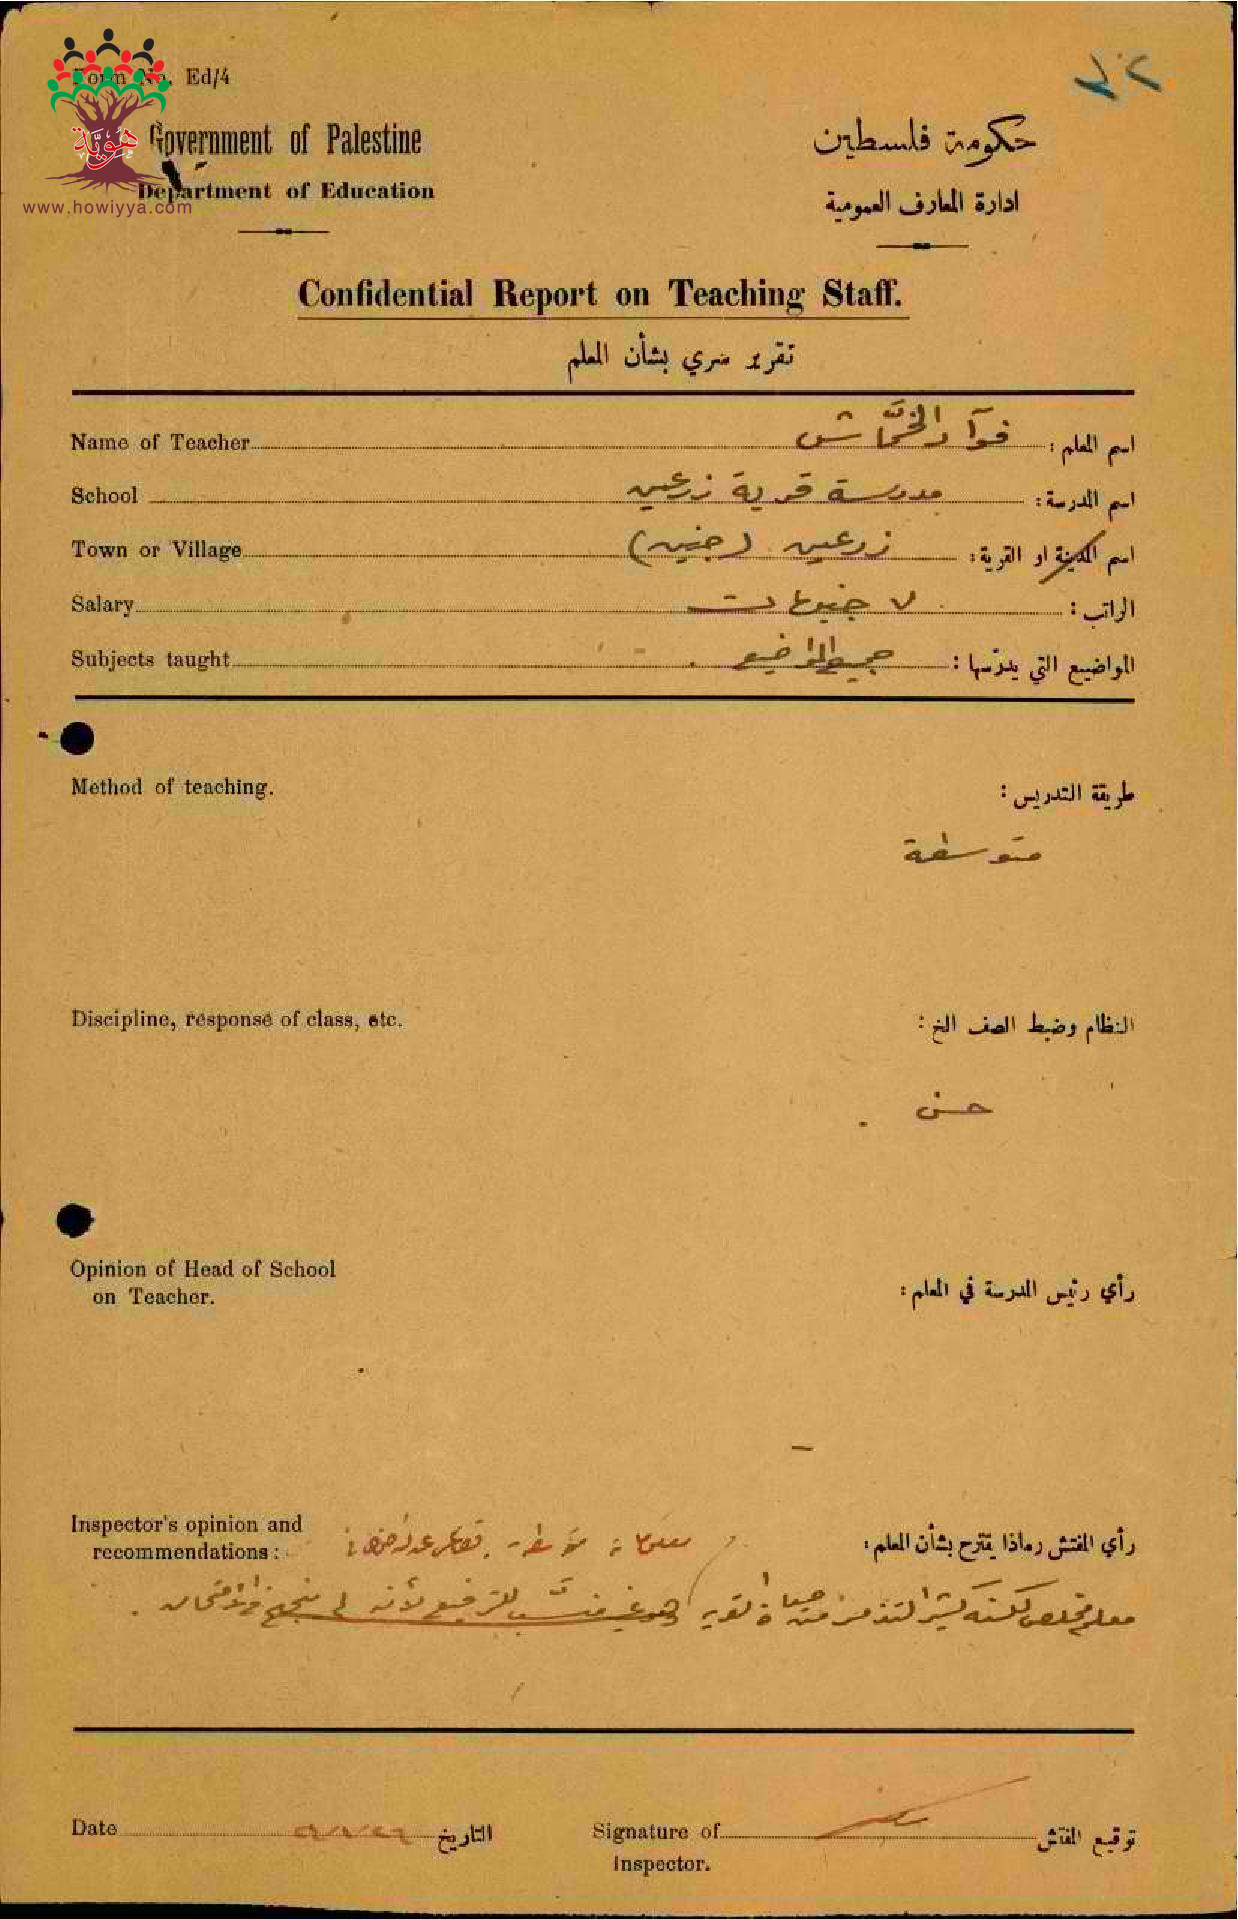 Form No. Ed/4
هُويَّة
www.howiyya.com
Government of Palestine
Department of Education
حكومة فلسطين
ادارة المعارف العمومية
Confidential Report on Teaching Staff.
تقرير سري بشأن المعلم
Name of Teacher اسم المعلم : فؤاد الخمّاش
School اسم المدرسة : مدرسة قرية زرعين
Town or Village اسم المدينة او القرية : زرعين (جنين)
Salary الراتب : ٧ جنيهات
Subjects taught المواضيع التي يدرّسها : جميع المواضيع .
Method of teaching. طريقة التدريس :
متوسطة
Discipline, response of class, etc. النظام وضبط الصف الخ :
حسن .
Opinion of Head of School
on Teacher.
رأي رئيس المدرسة في المعلم :
–
Inspector's opinion and
recommendations :
رأي المفتش وماذا يقترح بشأن المعلم :
معلم مخلص لكنه كثير التذمر من حياة القرية وهو غير منسّب للترفيع لأنه لم ينجح في الامتحان .
Date التاريخ
Signature of توقيع المفتش
Inspector.